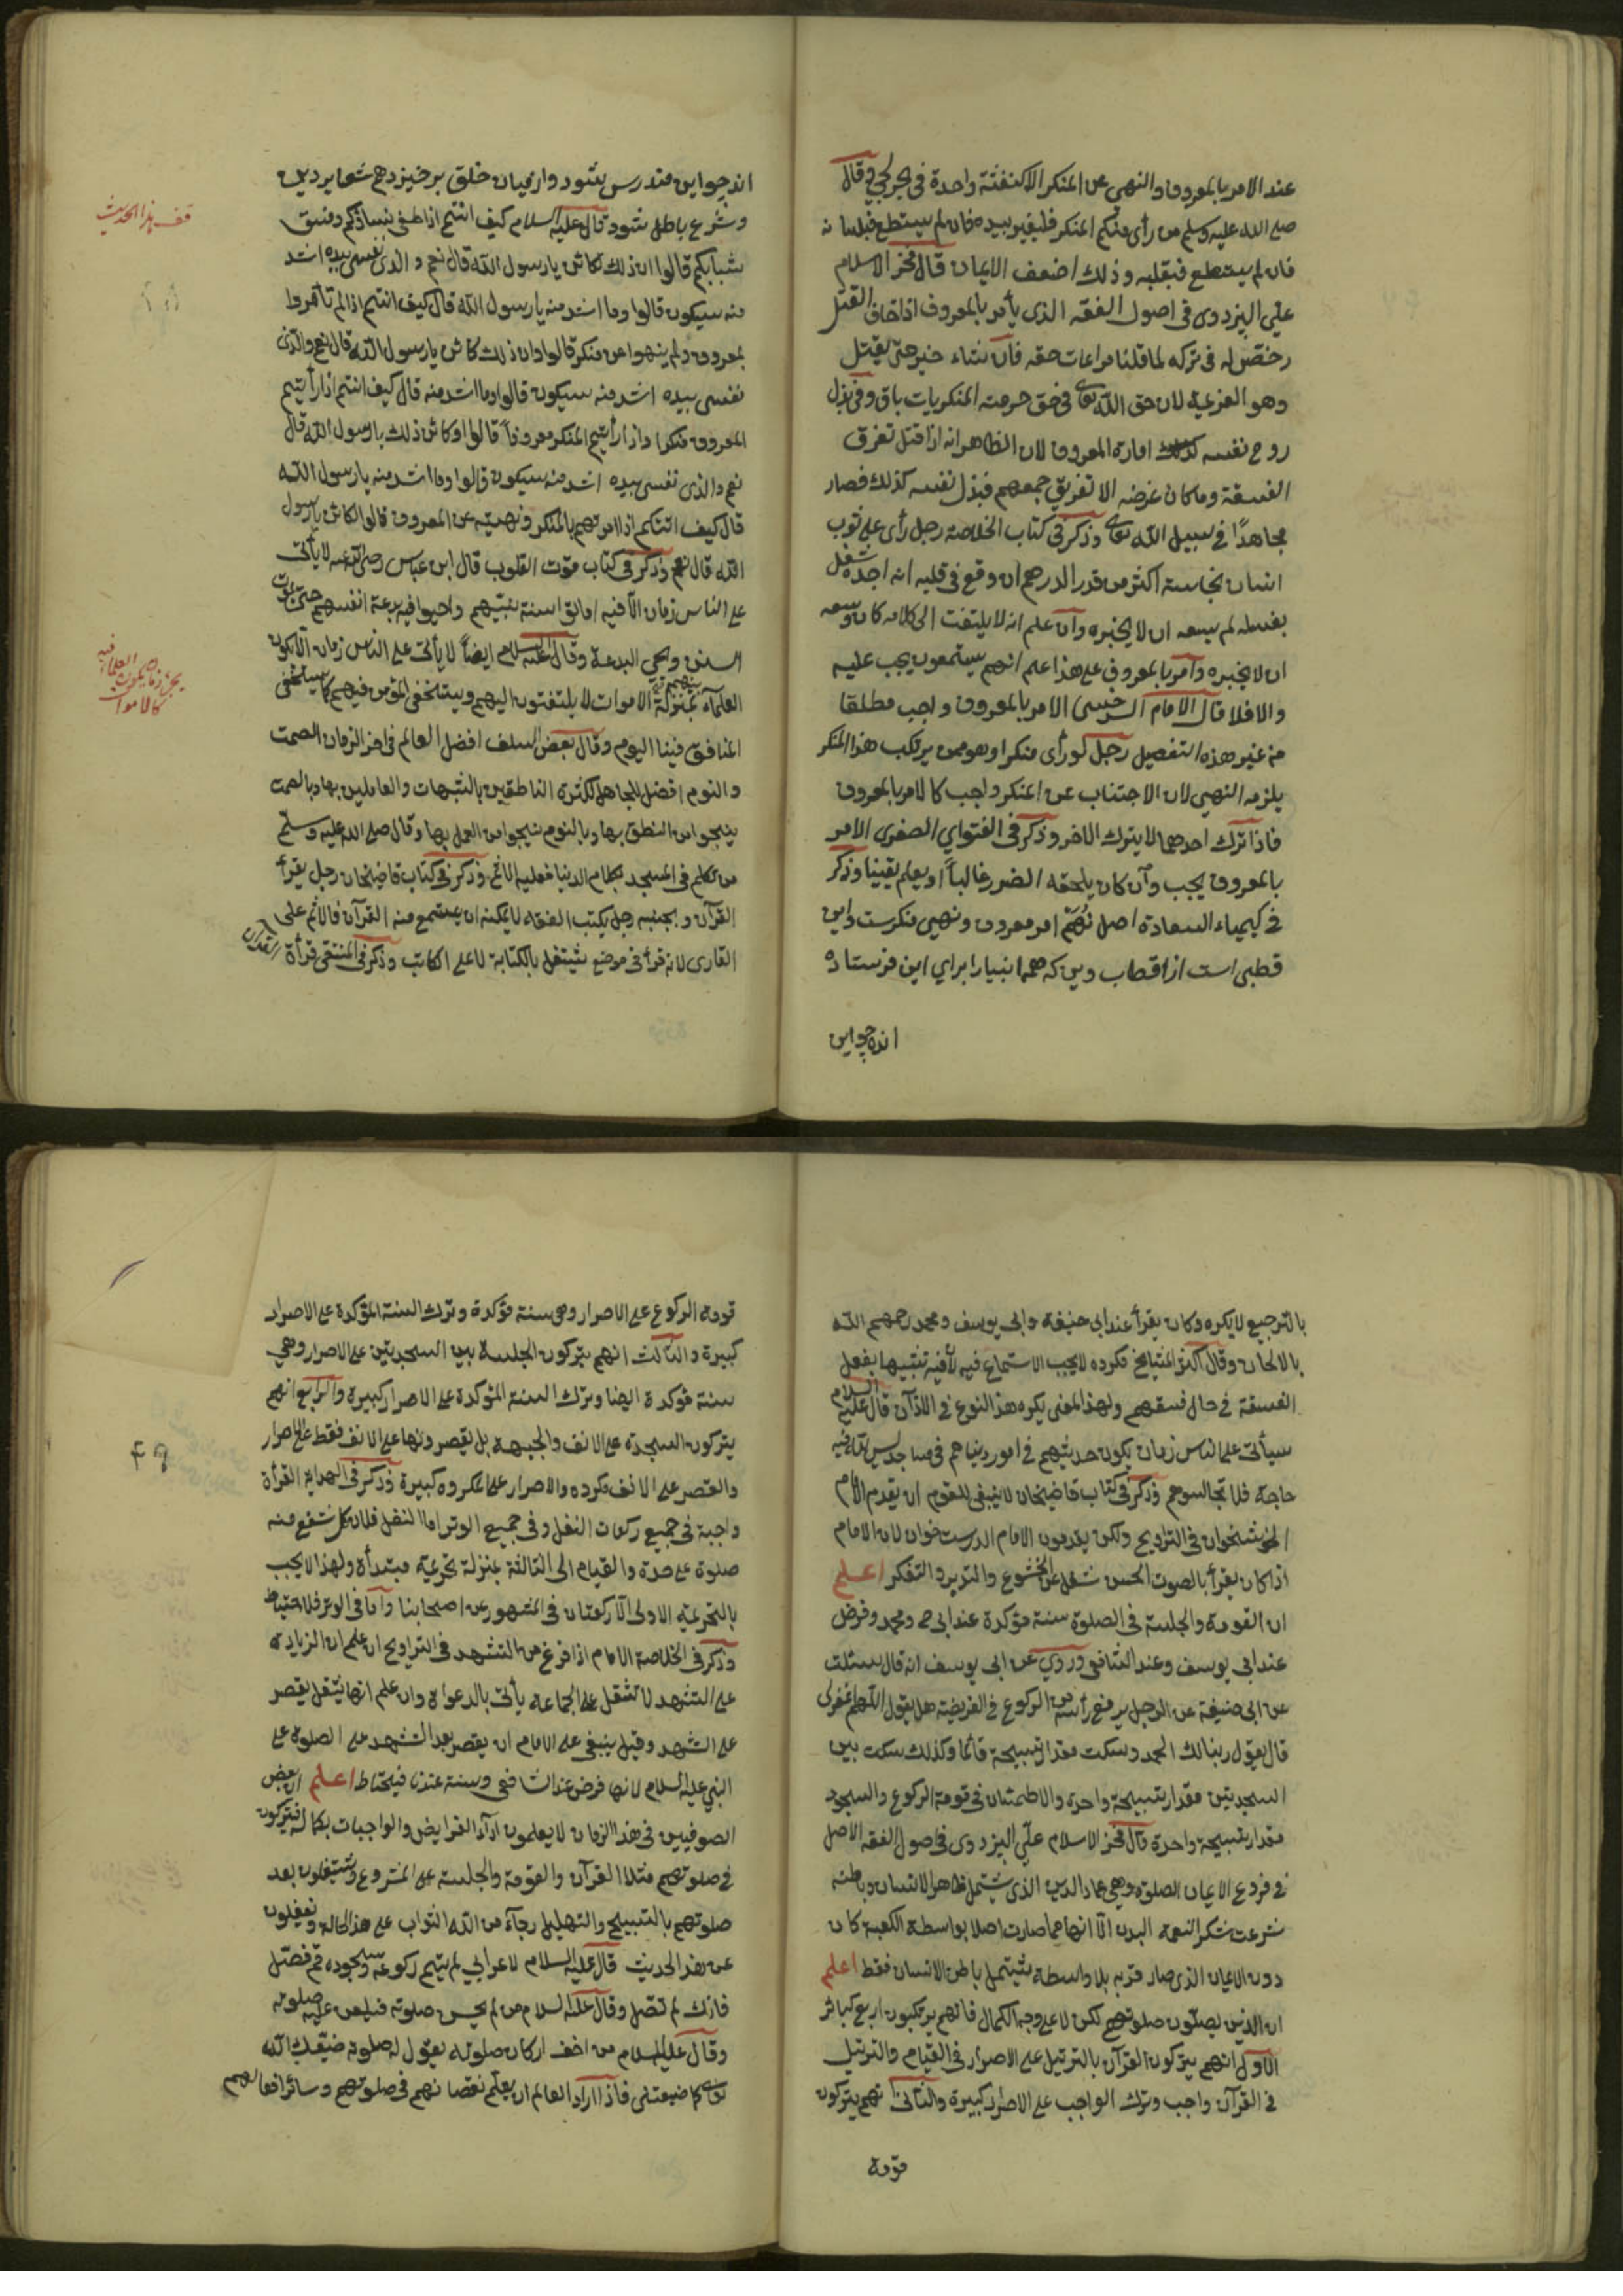 عند الامر بالمعروف والنهي عن المنكر الا كنفثة واحدة في بحر لجي وقال
صلى الله عليه وسلم من رأى منكم المنكر فليغير بيده فان لم يستطع فبلسانه
فان لم يستطع فبقلبه وذلك اضعف الايمان قال فخر الاسلام
علي البزدوي في اصول الفقه الذي يأمر بالمعروف اذا خاف القتل
رخص له في تركه لما قلنا مراعات حقه فان شاء صبر حتى يقتل
وهو العزيمة لان حق الله تعالى في حرمته المنكريات باق وفي بذل
روح نفسه كذلك اقامة المعروف لان الظاهر انه اذا قتل تفرق
الفسقة وما كان غرضه الا تفريق جمعهم فبذل نفسه كذلك فصار
مجاهدًا في سبيل الله تعالى وذكر في كتاب الخلاصة رجل رأى على ثوب
انسان نجاسة اكثر من قدر الدرهم ان وقع في قلبه انه اخبره يشتغل
بغسله لم يسعه ان لا يخبره وان علم انه لا يلتفت الى كلامه كان وسعه
ان لا يخبره وامر بالمعروف على هذا ان علم انهم يستمعون يجب عليه
والا فلا قال الامام السرخسي الامر بالمعروف واجب مطلقا
من غير هذه التفصيل رجل لو رأى منكرا وهو ممن يرتكب هذا المنكر
يلزمه النهي لان الاجتناب عن المنكر واجب كالامر بالمعروف
فاذا ترك احدهما لا يترك الاخر وذكر في الفتواي الصغرى الامر
بالمعروف يجب وان كان يلحقه الضرر غالباً او يعلم يقينا وذكر
في كيمياء السعادة اصل نهم امر معروف ونهي منكرست واين
قطبي است از اقطاب دين كه همه انبيا را براي اين فرستاده
انده چو اين
اند چو اين مندرس شود واز ميان خلق برخيزد همه شعاير دين
وشرع باطل شود قال عليه السلام كيف انتم اذا طغى نساؤكم وفسق
شبابكم قالوا ان ذلك كائن يا رسول الله قال نعم والذي نفسي بيده اشد
منه سيكون قالوا وما اشد منه يا رسول الله قال كيف انتم اذا لم تأمروا
بمعروف ولم ينهوا عن منكر قالوا وان ذلك كائن يا رسول الله قال نعم والذي
نفسي بيده اشد منه سيكون قالوا وما اشد منه قال كيف انتم اذا رأيتم
المعروف منكرا واذا رأيتم المنكر معروفاً قالوا وكائن ذلك يا رسول الله قال
نعم والذي نفسي بيده اشد منه سيكون قالوا وما اشد منه يا رسول الله
قال كيف انتم اذا امرتهم بالمنكر ونهيتم عن المعروف قالوا لكائن يا رسول
الله قال نعم وذكر في كتاب قوت القلوب قال ابن عباس رضي الله عنه لا يأتي
على الناس زمان الا فيه اماتوا سنة نبيهم واحيوا فيه بدعة انفسهم حتى تموت
السنن وتحي البدعة وقال عليه السلام ايضاً لا يأتي على الناس زمان الا يكون
العلماء بينهم بمنزلة الاموات لا يلتفتون اليهم ويستخفى المؤمن فيهم كما يستخفى
المنافق فينا اليوم وقال بعض السلف افضل العالم في اخر الزمان الصمت
والنوم افضل للجاهل لكثرة الناطقين بالشبهات والعاملين بها وبالصمت
ينجو من النطق بها وبالنوم ينجو من العمل بها وقال صلى الله عليه وسلم
من تكلم في المسجد بكلام الدنيا فعليه الاثم وذكر في كتاب قاضيخان رجل يقرأ
القرآن وبجنبه رجل يكتب الفقه لا يمكنه ان يستمع منه القرآن فالاثم على
القارى لانه قرأ في موضع يشتغل بالكتابة لا على الكاتب وذكر في المنتقى قرأة القرآن
قف هذا الحديث
العلماء فيه
كالاموات
بالترجيع لا يكره وكان يقرأ عند ابي حنيفة وابى يوسف ومحمد رحمهم الله
بالالحان وقال اكثر المشايخ مكروه لا يجب الاستماع فيه لان فيه تشبيها بفعل
الفسقة في حال فسقهم ولهذا المعنى يكره هذا النوع في الاذان قال عليه السلام
سيأتي على الناس زمان يكون حديثهم في امور دنياهم في مساجد ليس لله فيه
حاجة فلا تجالسوهم وذكر في كتاب قاضيخان لا ينبغي للقوم ان يقدم الامام
الخوشخوان في التراويح ولكن يقدمون الامام الدرست خوان لان الامام
اذا كان يقرأ بالصوت الحسن شغل عن الخشوع والتدبر والتفكر اعلم
ان القومة والجلسة في الصلوة سنة مؤكدة عند ابى ح ومحمد وفرض
عند ابي يوسف وعند الشافعي وروي عن ابى يوسف انه قال سئلت
عن ابى حنيفة عن الرجل يرفع رأسه من الركوع في الفريضة هل يقول اللهم اغفر لى
قال يقول ربنا لك الحمد وسكت مقدار تسبيحة قائما وكذلك سكت بين
السجدتين مقدار تسبيحة واحدة والاطمئنان في قومة الركوع والسجود
مقدار تسبيحة واحدة قال فخر الاسلام علي البزدوى في اصول الفقه الاصل
في فروع الايمان الصلوة وهي عماد الدين الذي يشتمل ظاهر الانسان وباطنه
شرعت شكرا لنعمة البدن الا انها مما صارت اصلا بواسطة الكعبة كان
دون الايمان الذي صار قربه بلا واسطة يشتمل باطن الانسان فقط اعلم
ان الذين يصلون صلوتهم لكن لا على وجه الكمال فانهم يرتكبون اربع كبائر
الاول انهم يتركون القرآن بالترتيل على الاصرار في القيام والترتيل
في القرآن واجب وترك الواجب على الاصرار كبيرة والثاني انهم يتركون
قومة
قومة الركوع على الاصرار وهي سنة مؤكدة وترك السنة المؤكدة على الاصرار
كبيرة والثالث انهم يتركون الجلسة بين السجدتين على الاصرار وهي
سنة مؤكدة ايضا وترك السنة المؤكدة على الاصرار كبيرة والرابع انهم
يتركون السجدة على الانف والجبهة بل يقصرونها على الانف فقط على الاصرار
والقصر على الانف مكروه والاصرار على المكروه كبيرة وذكر في الهداية القرأة
واجبة في جميع ركعات النفل وفي جميع الوتر اما النفل فلان كل شفع منه
صلوة على حدة والقيام الى الثالثة بمنزلة تحريمة مبتدأة ولهذا لا يجب
بالتحريمة الاولى الا ركعتان في المشهور عن اصحابنا واما في الوتر فللاحتياط
وذكر في الخلاصة الامام اذا فرغ من التشهد في التراويح ان علم ان الزيادة
على التشهد لا تثقل على الجماعة يأتى بالدعوات وان علم انها يثقل يقصر
على التشهد وقيل ينبغي على الامام ان يقصر بعد التشهد على الصلوة على
النبي عليه السلام لانها فرض عند الشافعي وسنة عندنا فيحتاط اعلم ان بعض
الصوفيين في هذا الزمان لا يعلمون اداء الفرايض والواجبات بكماله فيتركون
في صلوتهم مثلا القرآن والقومة والجلسة على المشروع ويشتغلون بعد
صلوتهم بالتسبيح والتهليل رجاء من الله الثواب على هذا الحالة ويغفلون
عن هذا الحديث قال عليه السلام لاعرابي لم يتم ركوعه وسجوده قم فصل
فانك لم تصل وقال عليه السلام من لم يحسن صلوته فيلعن عليه صلوته
وقال عليه السلام من اخف اركان صلوته يقول له صلوته ضيعك الله
تعالى كما ضيعتنى فاذا اراد العالم ان يعلم نقصانهم في صلوتهم وسائر افعالهم